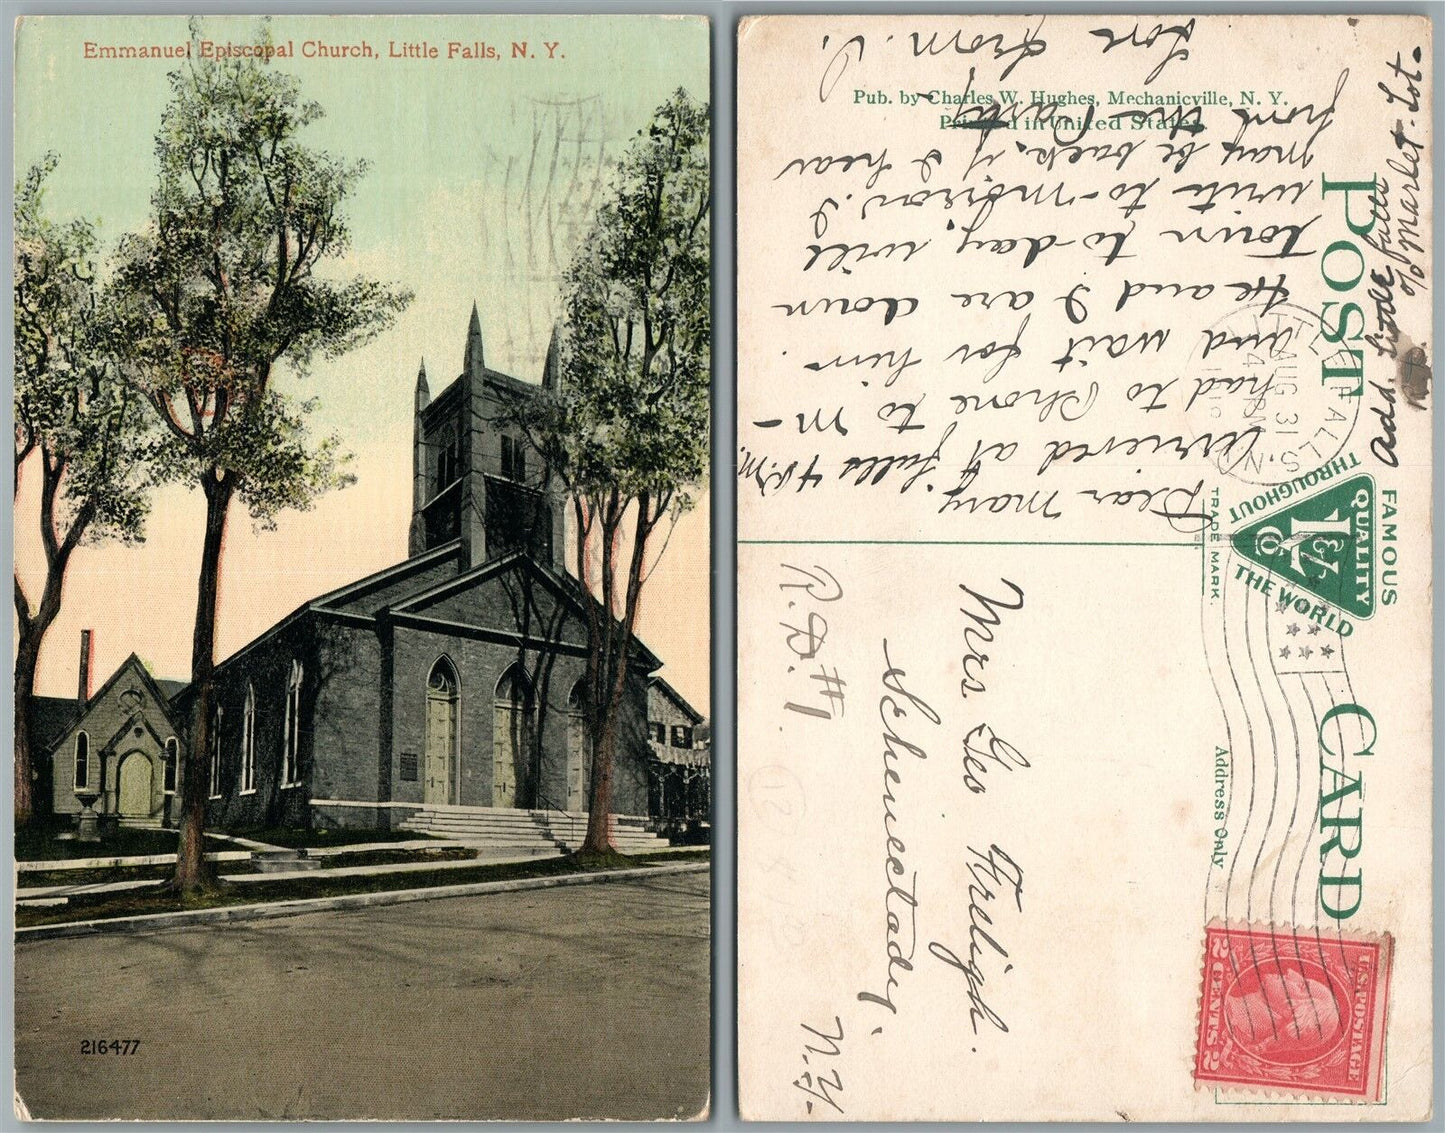 Emmanuel Episcopal Church, Little Falls, N. Y.
216477
Pub. by Charles W. Hughes, Mechanicville, N. Y.
Printed in United States.
POST CARD
FAMOUS
QUALITY
THROUGHOUT
THE WORLD
TRADE MARK.
Address Only
LITTLE FALLS N.Y.
AUG 31
4 PM
U.S. POSTAGE
2 CENTS 2
Dear Mary
Arrived at falls 4 P.M.
had to Phone to M-
and wait for him.
He and I are down
town to-day, will
write to-morrow. I
may be back, if I hear
from the Party
Love from. I.
Add. Little Falls
c/o Marlet Lot.
Mrs Geo Freligh.
Schenectady,
R.D.#1 N.Y.